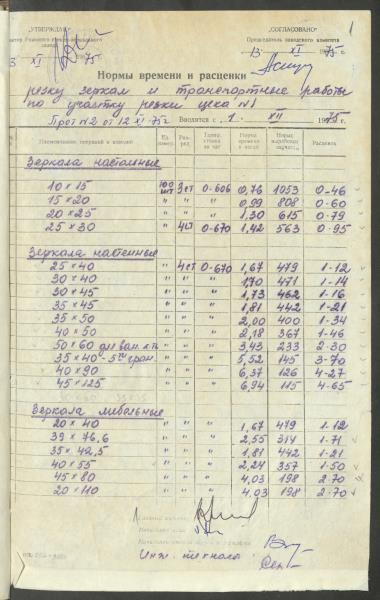 1
„УТВЕРЖДАЮ"
„СОГЛАСОВАНО"
Председатель заводского комитета
13 XI 1975 г.
Нормы времени и расценки
резку зеркал и транспортные работы
по участку резки цеха №1
Прот №2 от 12 XI 75 г Вводятся с „ 1 " XII 1975 г.
Наименование операций и изделий Раз-ряд Норма времени Норма выработки Расценка
Зеркала настольные
10 × 15 100 шт 3 ст 0-606 0,76 1053 0-46
15 × 20 " " " 0,99 808 0-60
20 × 25 " " " 1,30 615 0-79
25 × 30 " 4 ст 0-670 1,42 563 0-95
Зеркала настенные
25 × 40 " 4 ст 0-670 1,67 479 1-12
30 × 40 " " " 1,70 471 1-14
30 × 45 " " " 1,73 462 1-16
35 × 45 " " " 1,81 442 1-21
35 × 50 " " " 2,00 400 1-34
40 × 50 " " " 2,18 367 1-46
50 × 60 для ван. к-н " " " 3,43 233 2-30
35 × 40 - 5ти гран. " " " 5,52 145 3-70
40 × 90 " " " 6,37 126 4-27
45 × 125 " " " 6,94 115 4-65
Зеркала мебельные
20 × 40 " " " 1,67 479 1-12
39 × 76,6 " " " 2,55 314 1-71
35 × 42,5 " " " 1,81 442 1-21
40 × 55 " " " 2,24 357 1-50
45 × 80 " " " 4,03 198 2-70
20 × 110 " " " 4,03 198 2-70
Инж. технолог